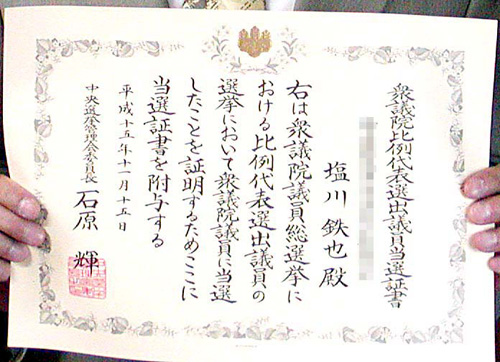 衆議院比例代表選出議員当選証書
塩川鉄也殿
右は衆議院議員総選挙に
おける比例代表選出議員の
選挙において衆議院議員に当選
したことを証明するためここに
当選証書を附与する
平成十五年十一月十五日
中央選挙管理会委員長 石原輝